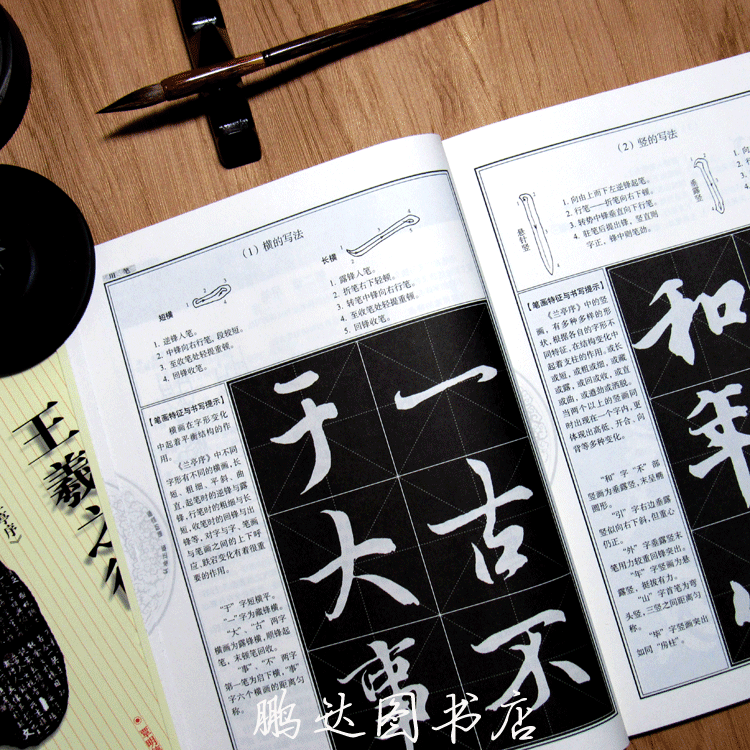 用笔
(1) 横的写法
短横
1. 逆锋入笔。
2. 中锋向右行笔, 段较短。
3. 至收笔处轻提重顿。
4. 回锋收笔。
长横
1. 露锋入笔。
2. 折笔右下轻顿。
3. 转笔中锋向右行笔。
4. 至收笔处轻提重顿。
5. 回锋收笔。
【笔画特征与书写提示】
横画在字形变化
中起着平衡结构的作
用。
《兰亭序》中不同
字形有不同的横画, 长
短、粗细、平斜、曲
直, 起笔时的逆锋与露
锋, 行笔时的粗细与长
短, 收笔时的回锋与出
锋等, 对字与字、笔画
与笔画之间的上下呼
应、跌宕变化有着很重
要的作用。
“于”字短横平。
“一”字为藏锋横。
“大”、“古”两字
横画为露锋横, 顺锋起
笔, 末顿笔回收。
“事”、“不”两字
第一笔为启下横, “事”
字六个横画的距离匀
称。
于一
大古
事不
(2) 竖的写法
悬针竖
1. 向由上而下左逆锋起笔。
2. 行笔——折笔向右下顿。
3. 转势中锋垂直向下行笔。
4. 驻笔后提出锋, 竖直则
字正, 锋中则笔劲。
垂露竖
【笔画特征与书写提示】
《兰亭序》中的竖
画, 有多种多样的形
状, 根据各自的字形不
同特征, 在结构变化中
起着支柱的作用, 或长
或短, 或粗或细, 或藏
或露, 或回或收, 或直
或曲, 或遒劲或洒脱。
当两个以上的竖画同
时出现在一个字内, 更
体现出高低、开合、向
背等多种变化。
“和”字“禾”部
竖画为垂露竖, 末呈椭
圆形。
“引”字右边垂露
竖似向右下斜, 但重心
仍正。
“外”字垂露竖末
笔用力较重回锋突出。
“年”字竖画为悬
露竖, 挺拔有力。
“山”字首笔为弯
头竖, 三竖之间距离匀
称。
“毕”字竖画突出
如同“房柱”。
和
年
王羲之行
鹏达图书店